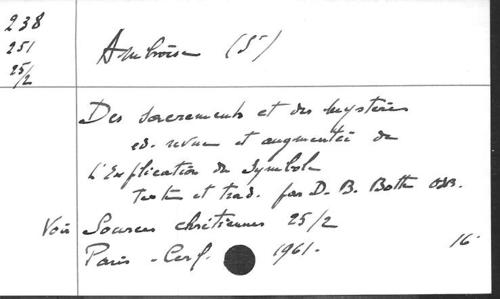 238
251
25/2
Ambroise (St)
Des sacrements et des mystères
ed. revue et augmentée de
L'Explication du Symbole
texte et trad. par D. B. Botte OSB.
Voir Sources chrétiennes 25/2
Paris - Cerf. 1961. 16